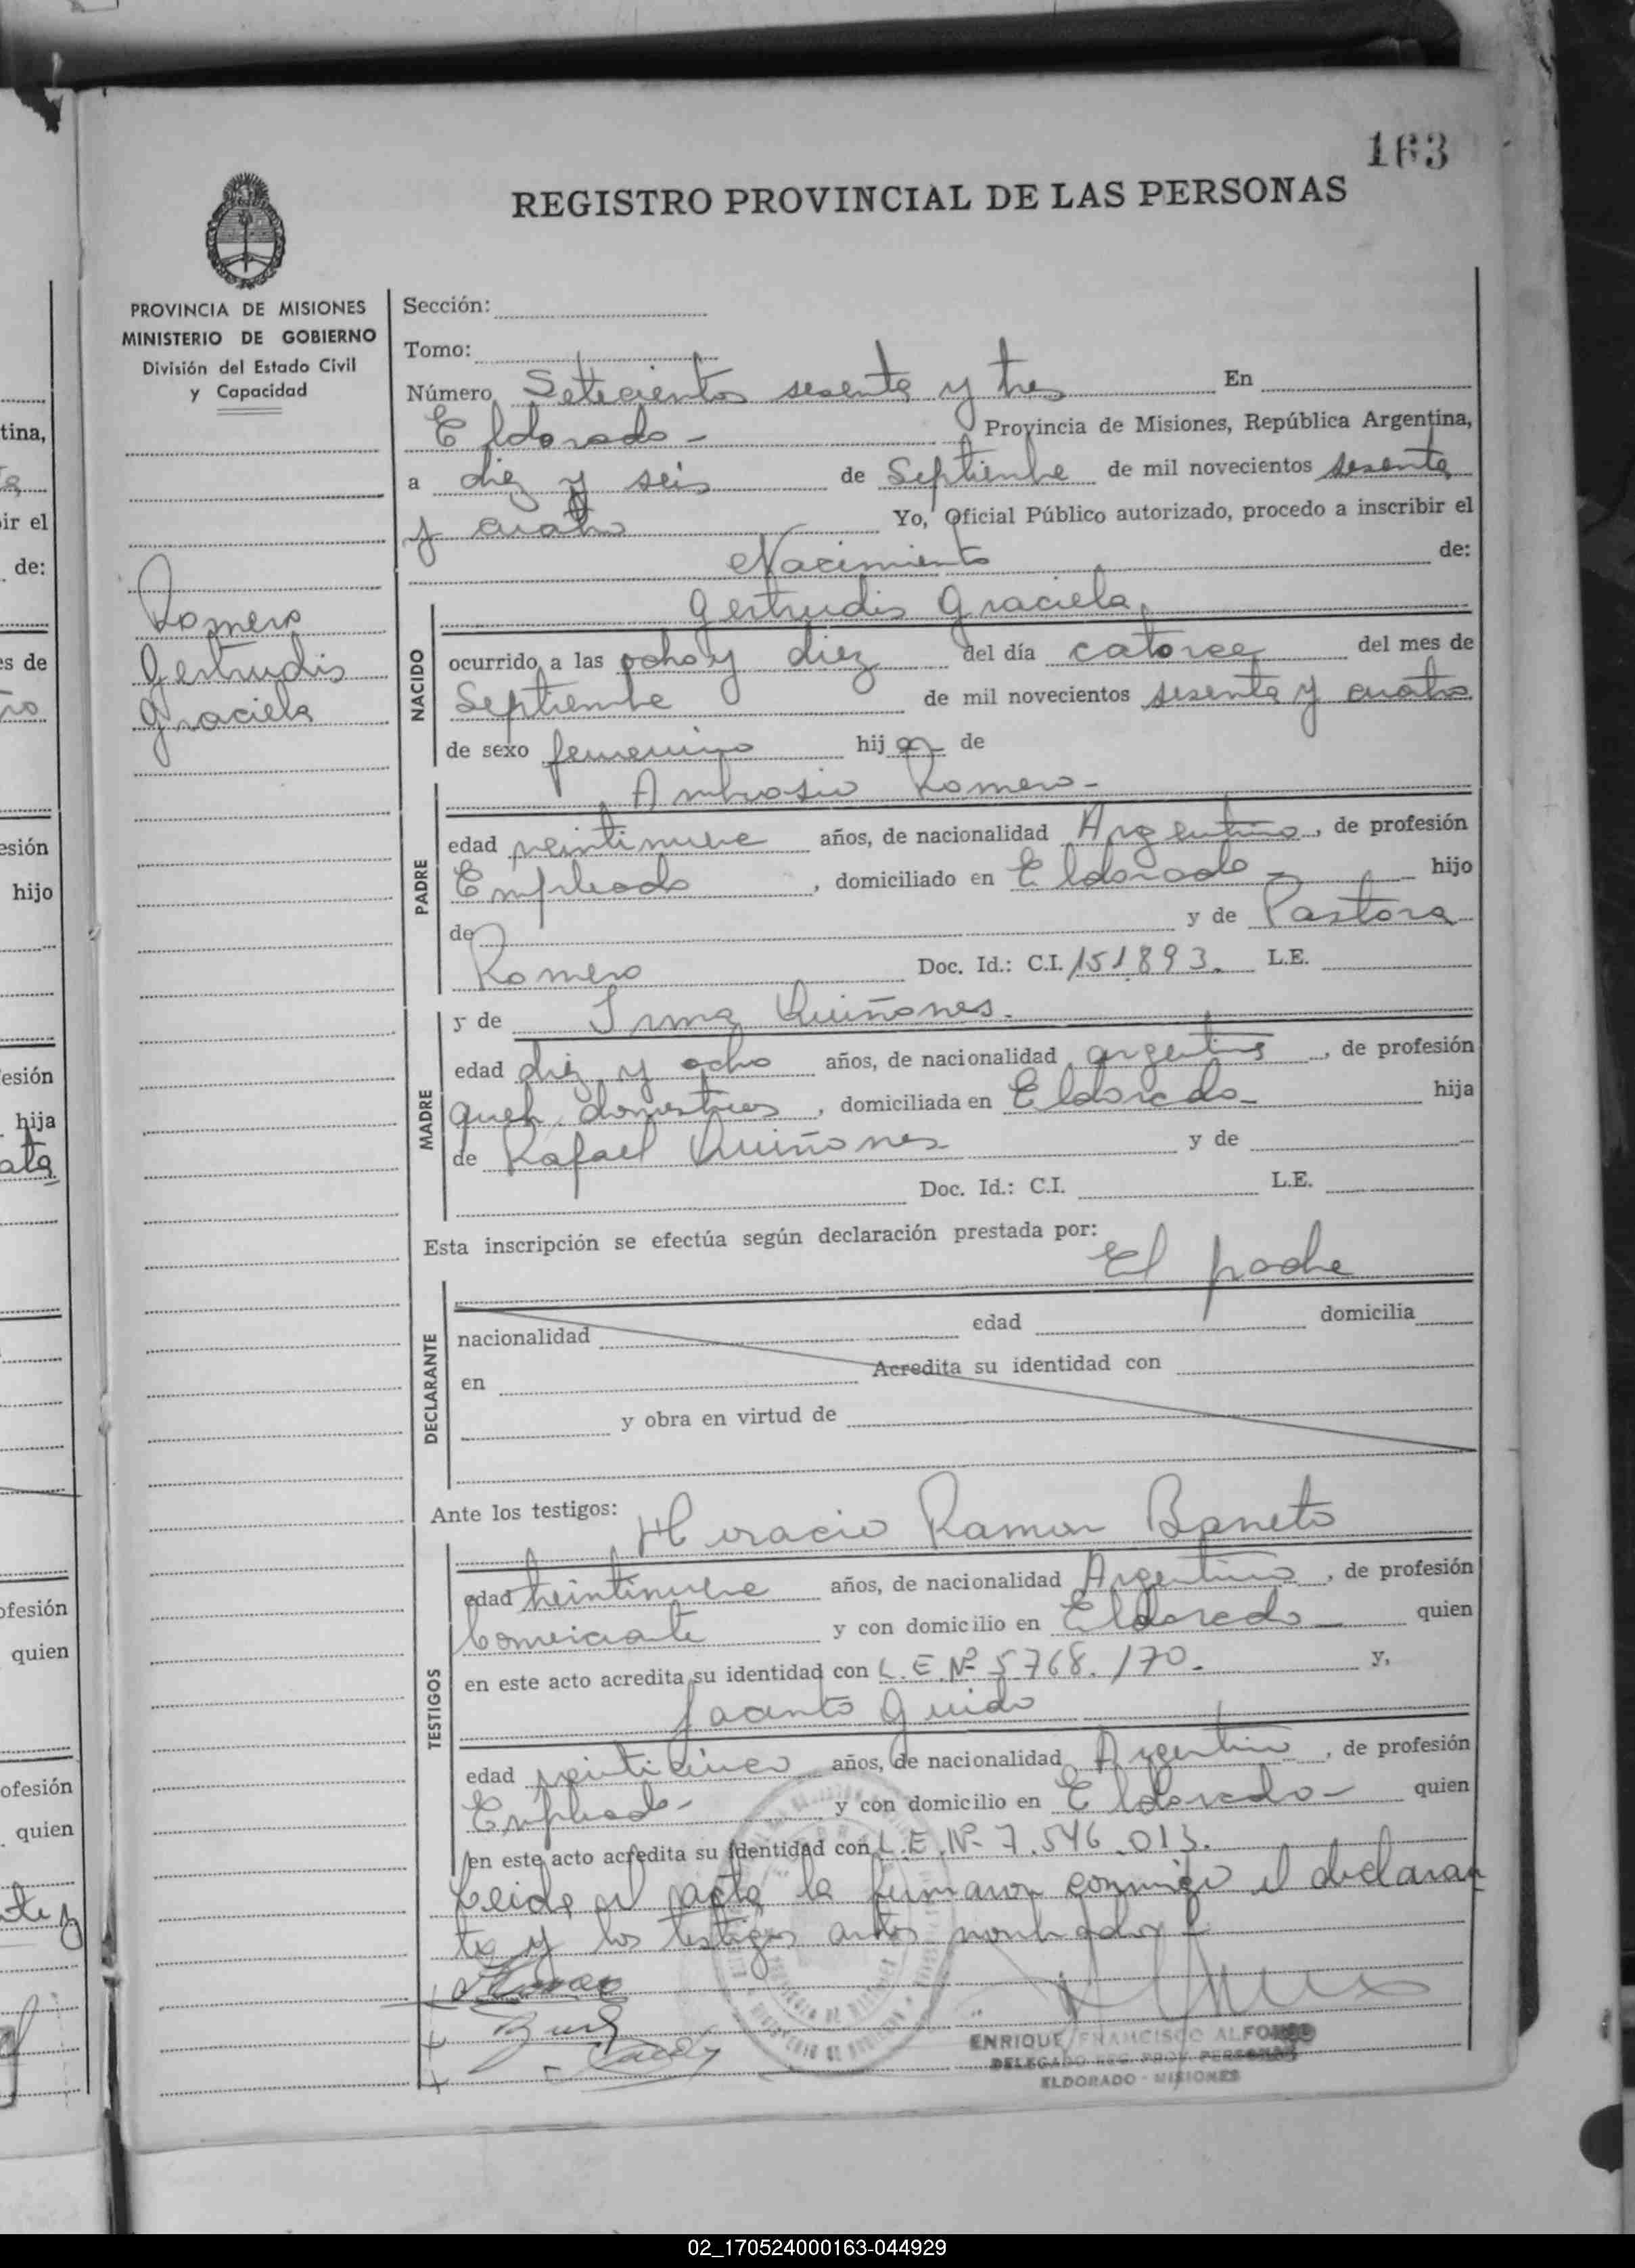 163
REGISTRO PROVINCIAL DE LAS PERSONAS
PROVINCIA DE MISIONES
MINISTERIO DE GOBIERNO
División del Estado Civil
y Capacidad
Romero
Gertrudis
Graciela
Sección:
Tomo:
Número Setecientos sesenta y tres En
Eldorado - Provincia de Misiones, República Argentina,
a diez y seis de Septiembre de mil novecientos sesenta
y cuatro Yo, Oficial Público autorizado, procedo a inscribir el
Nacimiento de:
Gertrudis Graciela
NACIDO
ocurrido a las ocho y diez del día catorce del mes de
Septiembre de mil novecientos sesenta y cuatro
de sexo femenino hija de
Ambrosio Romero -
PADRE
edad veintinueve años, de nacionalidad Argentino, de profesión
Empleado, domiciliado en Eldorado - hijo
de y de Pastora
Romero Doc. Id.: C.I. 151.893. L.E.
MADRE
y de Irma Quiñones.
edad diez y ocho años, de nacionalidad argentina, de profesión
queh. domesticos, domiciliada en Eldorado - hija
de Rafael Quiñones y de
Doc. Id.: C.I. L.E.
Esta inscripción se efectúa según declaración prestada por:
El padre
DECLARANTE
nacionalidad edad domicilia
en Acredita su identidad con
y obra en virtud de
Ante los testigos: Horacio Ramon
TESTIGOS
edad veintinueve años, de nacionalidad Argentino, de profesión
Comerciante y con domicilio en Eldorado - quien
en este acto acredita su identidad con L.E. Nº 5768.170. y,
Jacinto Guido
edad veinticinco años, de nacionalidad Argentino, de profesión
Empleado - y con domicilio en Eldorado - quien
en este acto acredita su identidad con L.E. Nº 7.546.013.
Leida el acta la firmaron conmigo el declaran
te y los testigos antes nombrados
ENRIQUE FRANCISCO ALFONSO
DELEGADO REG. PROV. PERSONAS
ELDORADO - MISIONES
tina,
ir el
de:
es de
esión
hijo
esión
hija
ofesión
quien
ofesión
quien
02_170524000163-044929